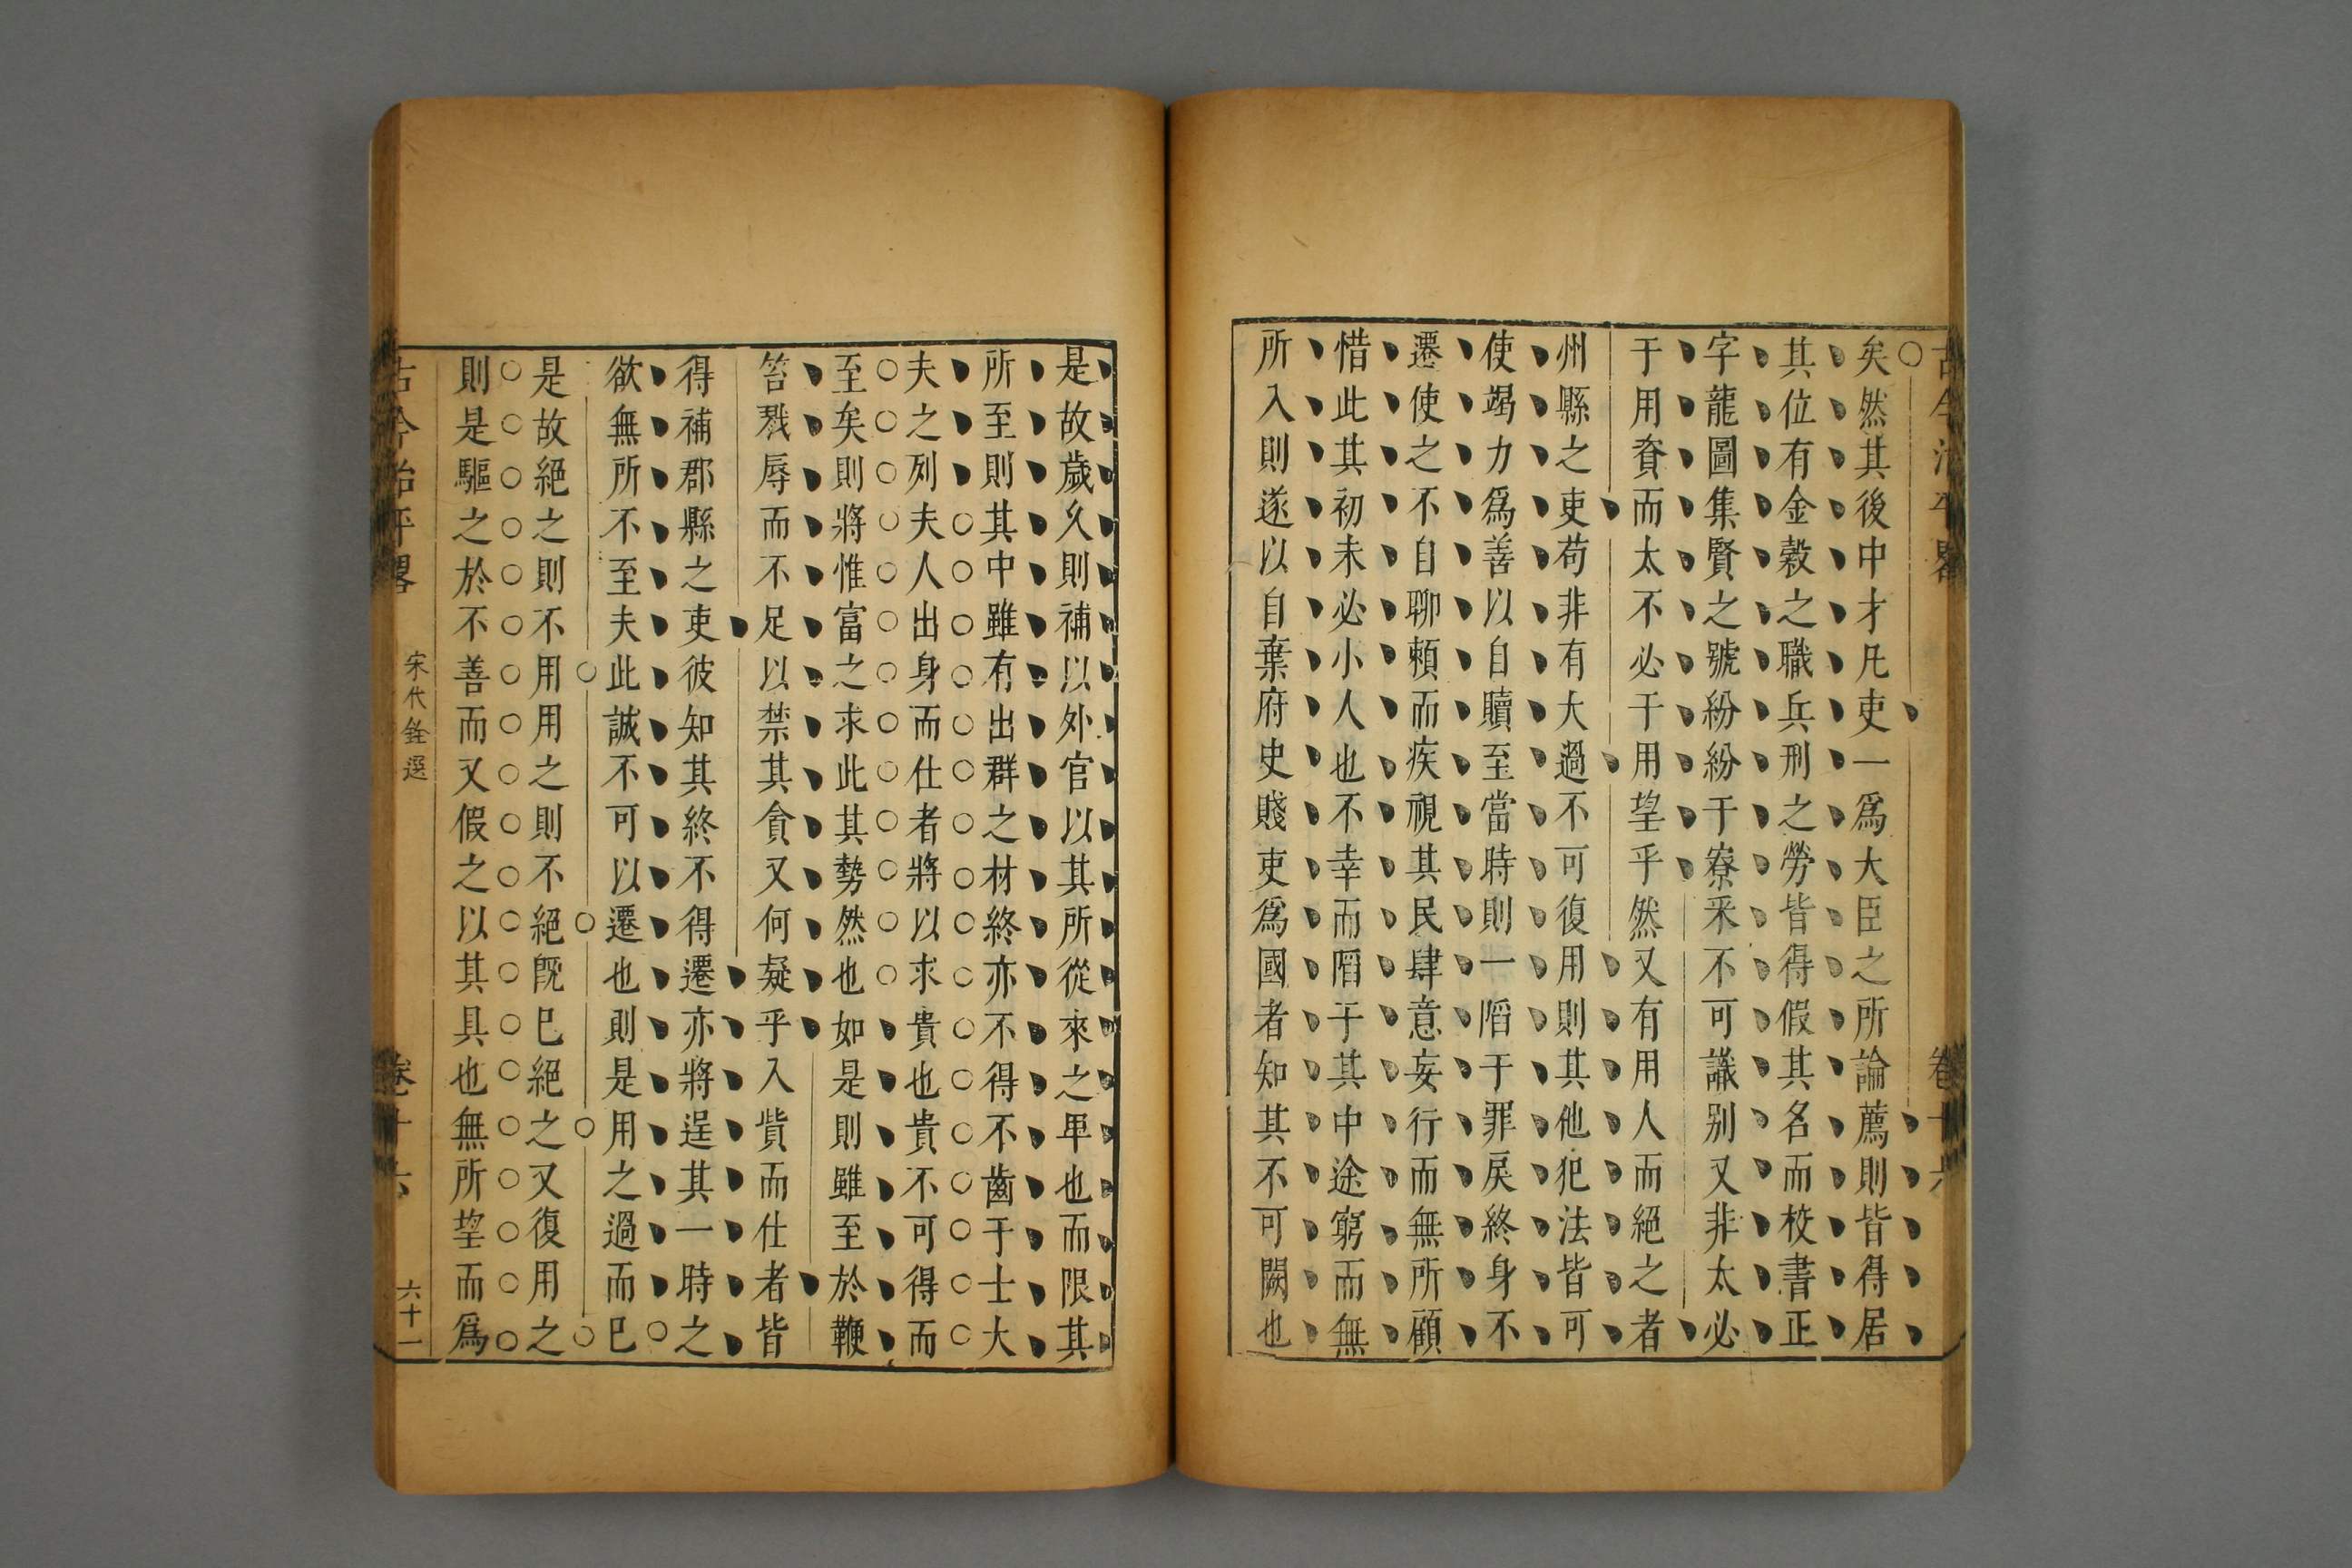 古今治平畧 卷十六
矣然其後中才凡吏一爲大臣之所論薦則皆得居
其位有金穀之職兵刑之勞皆得假其名而校書正
字龍圖集賢之號紛紛于寮寀不可議别又非太必
于用賚而太不必于用望乎然又有用人而絕之者
州縣之吏苟非有大過不可復用則其他犯法皆可
使竭力爲善以自贖至當時則一陷于罪戾終身不
遷使之不自聊頼而疾視其民肆意妄行而無所顧
惜此其初未必小人也不幸而陷于其中途窮而無
所入則遂以自棄府史賤吏爲國者知其不可闕也
是故歲久則補以外官以其所從來之卑也而限其
所至則其中雖有出群之材終亦不得不齒于士大
夫之列夫人出身而仕者將以求貴也貴不可得而
至矣則將惟富之求此其勢然也如是則雖至於鞭
笞戮辱而不足以禁其貪又何疑乎入貲而仕者皆
得補郡縣之吏彼知其終不得遷亦將逞其一時之
欲無所不至夫此誠不可以遷也則是用之過而已
是故絕之則不用用之則不絕旣已絕之又復用之
則是驅之於不善而又假之以其具也無所望而爲
古今治平畧 宋代銓選 卷十六 六十一